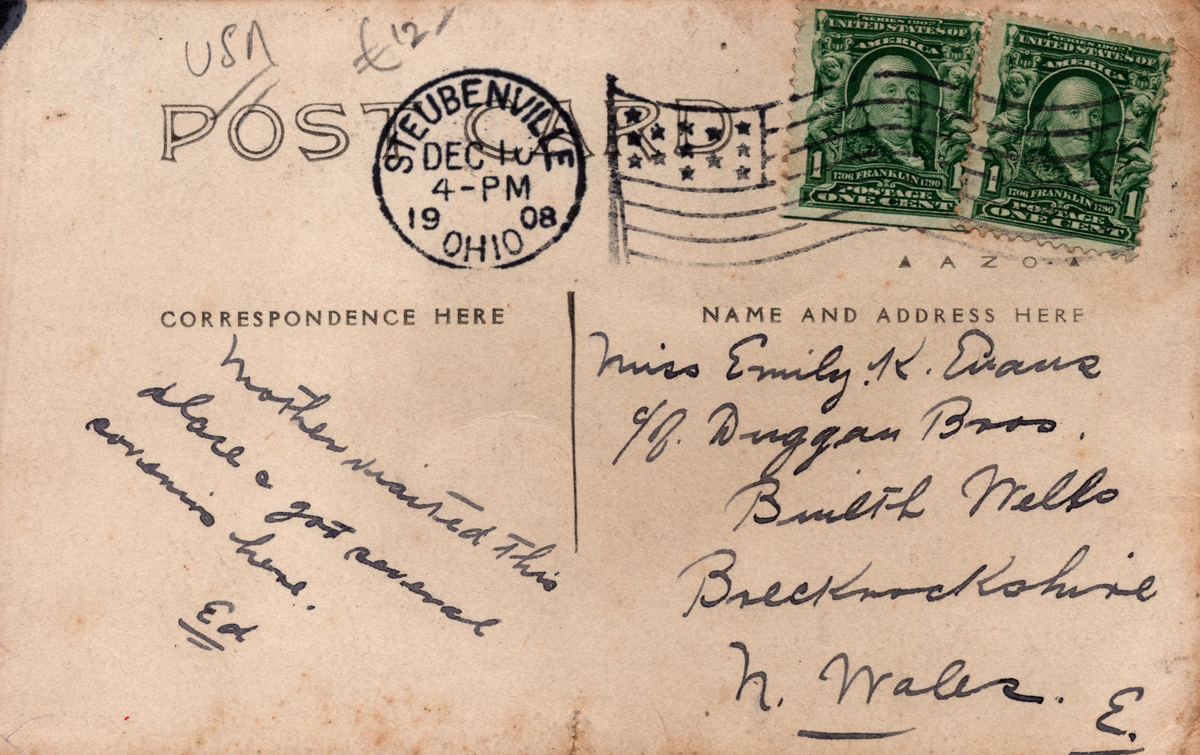 USA £12/
POST CARD
STEUBENVILLE
DEC 10
4-PM
1908
OHIO
SERIES 1902
UNITED STATES OF
AMERICA
1706 FRANKLIN 1790
1 POSTAGE
ONE CENT
SERIES 1902
UNITED STATES OF
AMERICA
1706 FRANKLIN 1790
1 POSTAGE 1
ONE CENT
▲ A Z O ▲
CORRESPONDENCE HERE
NAME AND ADDRESS HERE
Mother visited this
place & got several
sovenirs here.
Ed
Miss Emily. K. Evans
c/o. Duggan Bros.
Builth Wells
Brecknockshire
N. Wales.
E.